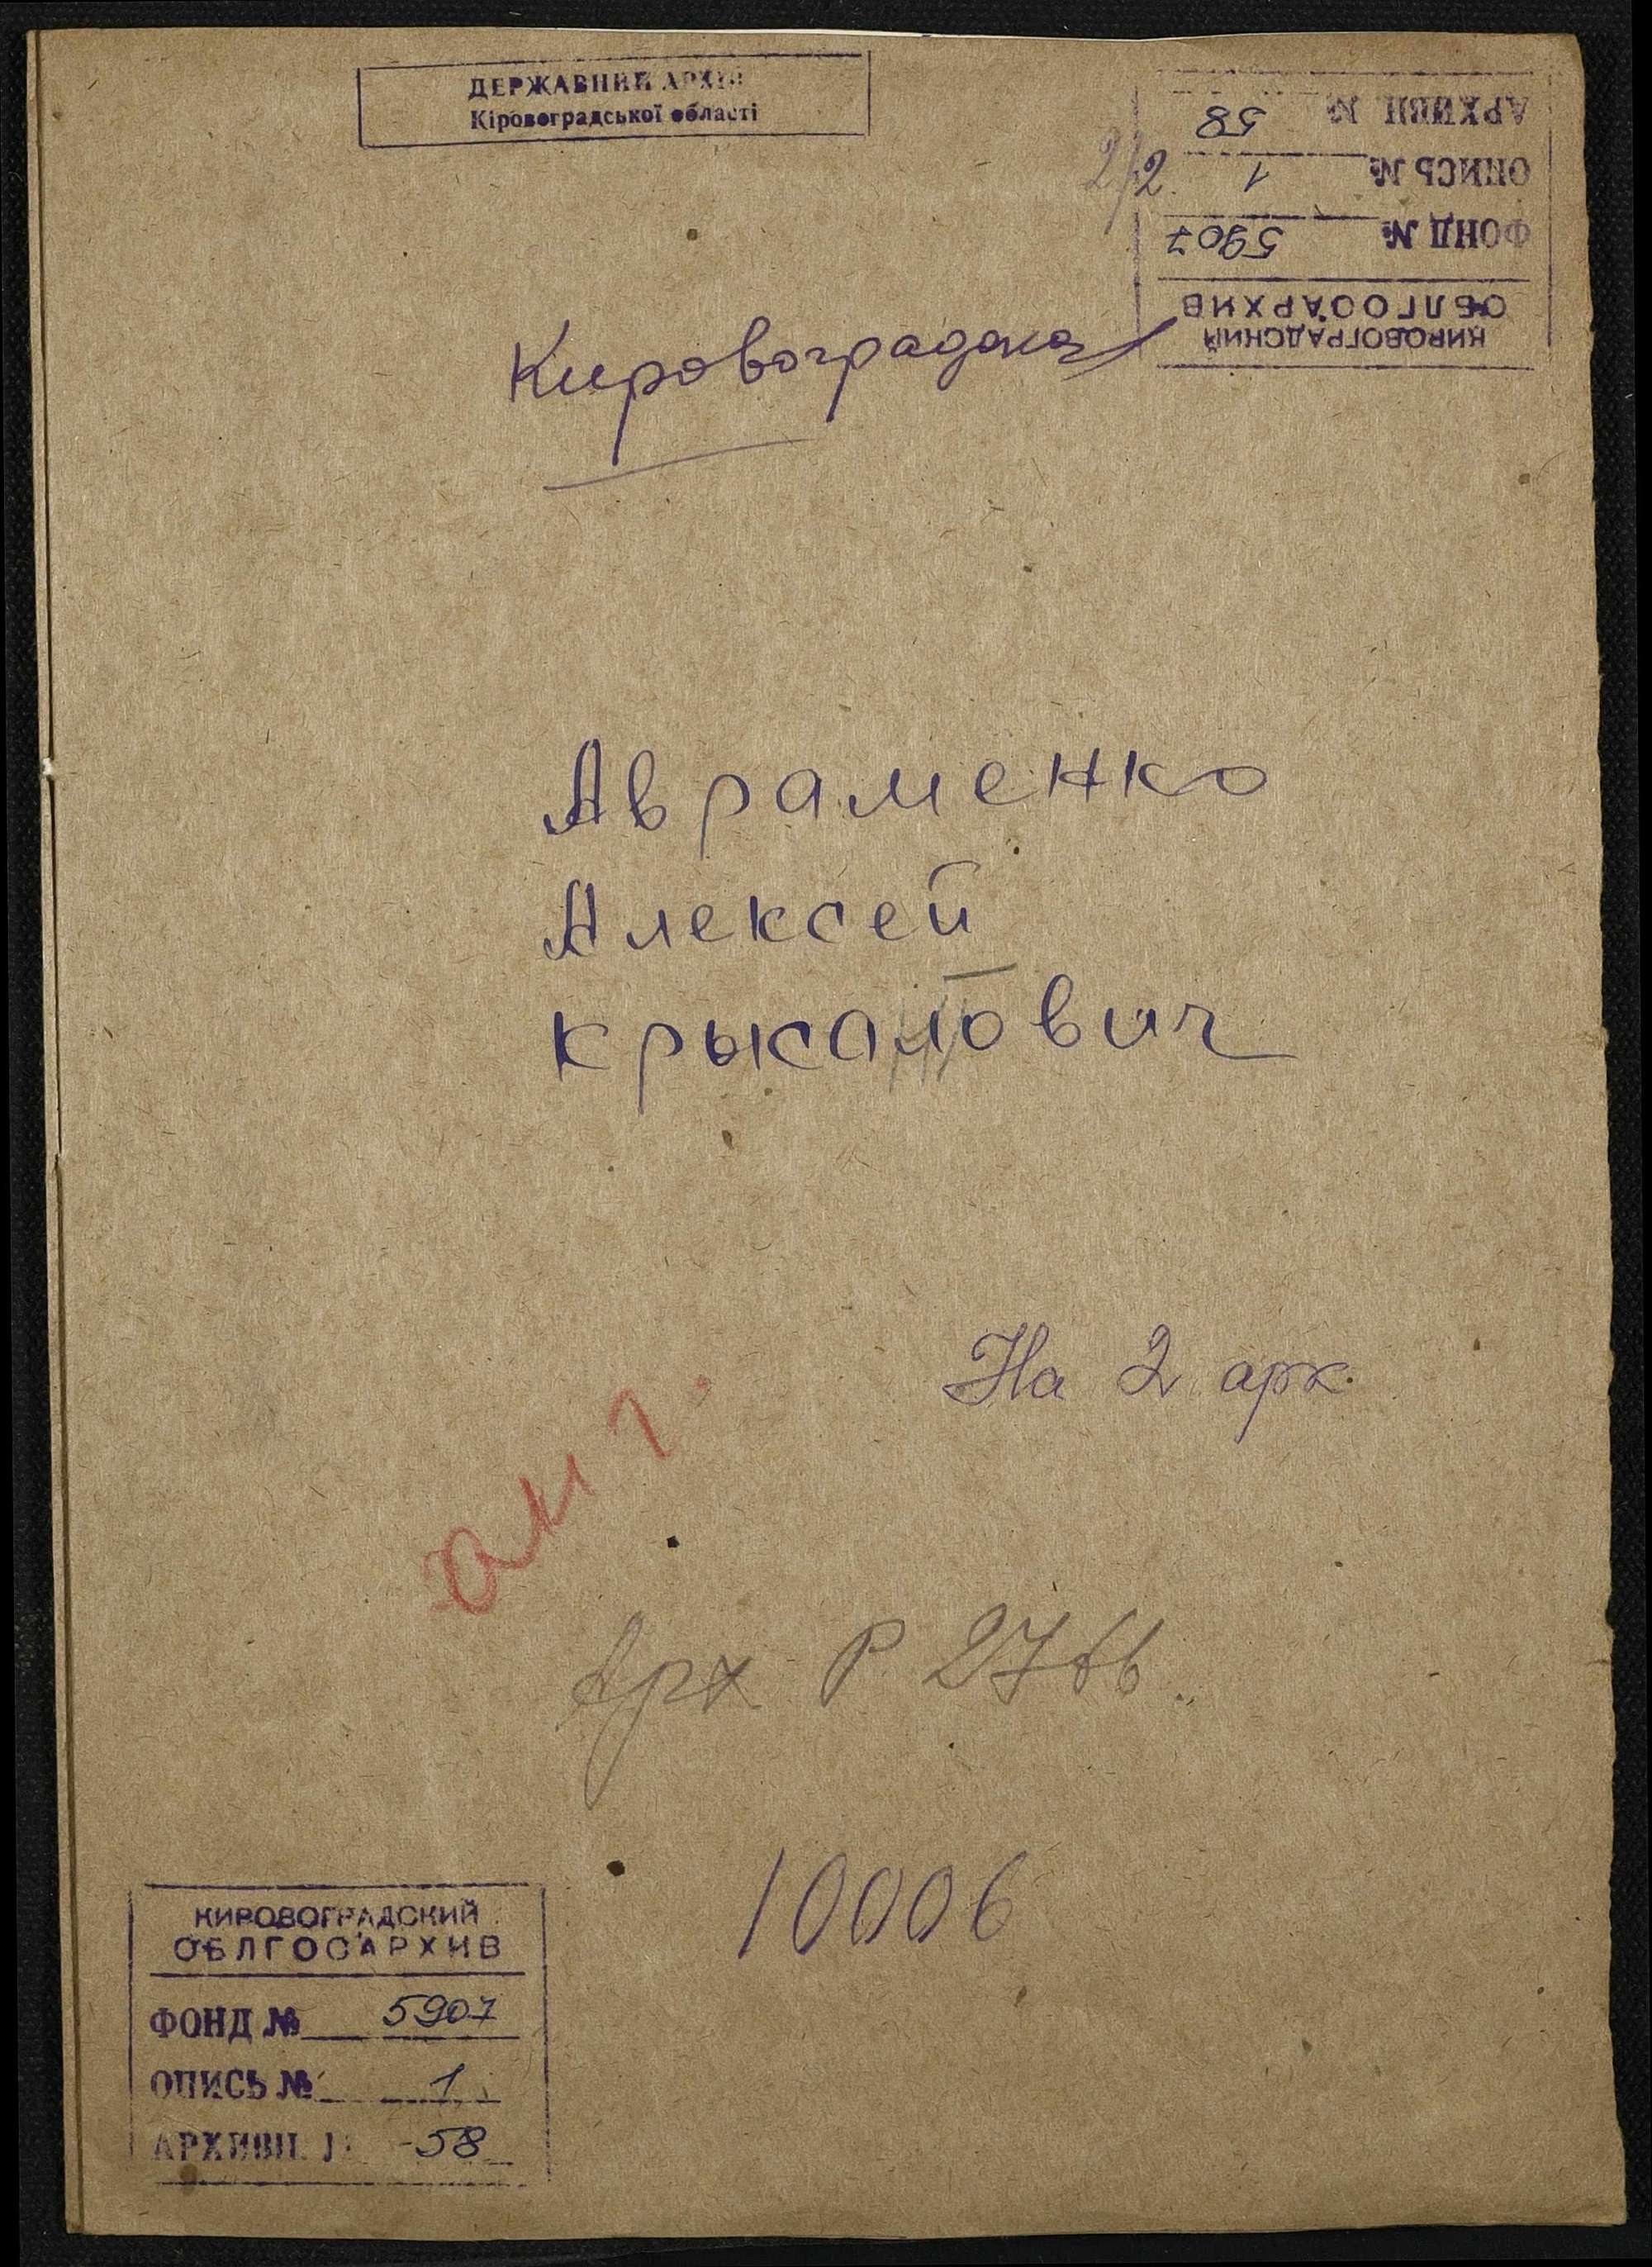 ДЕРЖАВНИЙ АРХІВ
Кіровоградської області
АРХИВН. № 58
ОПИСЬ № 1
ФОНД № 5907
КИРОВОГРАДСКИЙ
ОБЛГОСАРХИВ
Кировоградська
Авраменко
Алексей
Крысанович
На 2 арк.
Арх Р 2766.
10006
КИРОВОГРАДСКИЙ
ОБЛГОСАРХИВ
ФОНД № 5907
ОПИСЬ № 1
АРХИВН. № 58